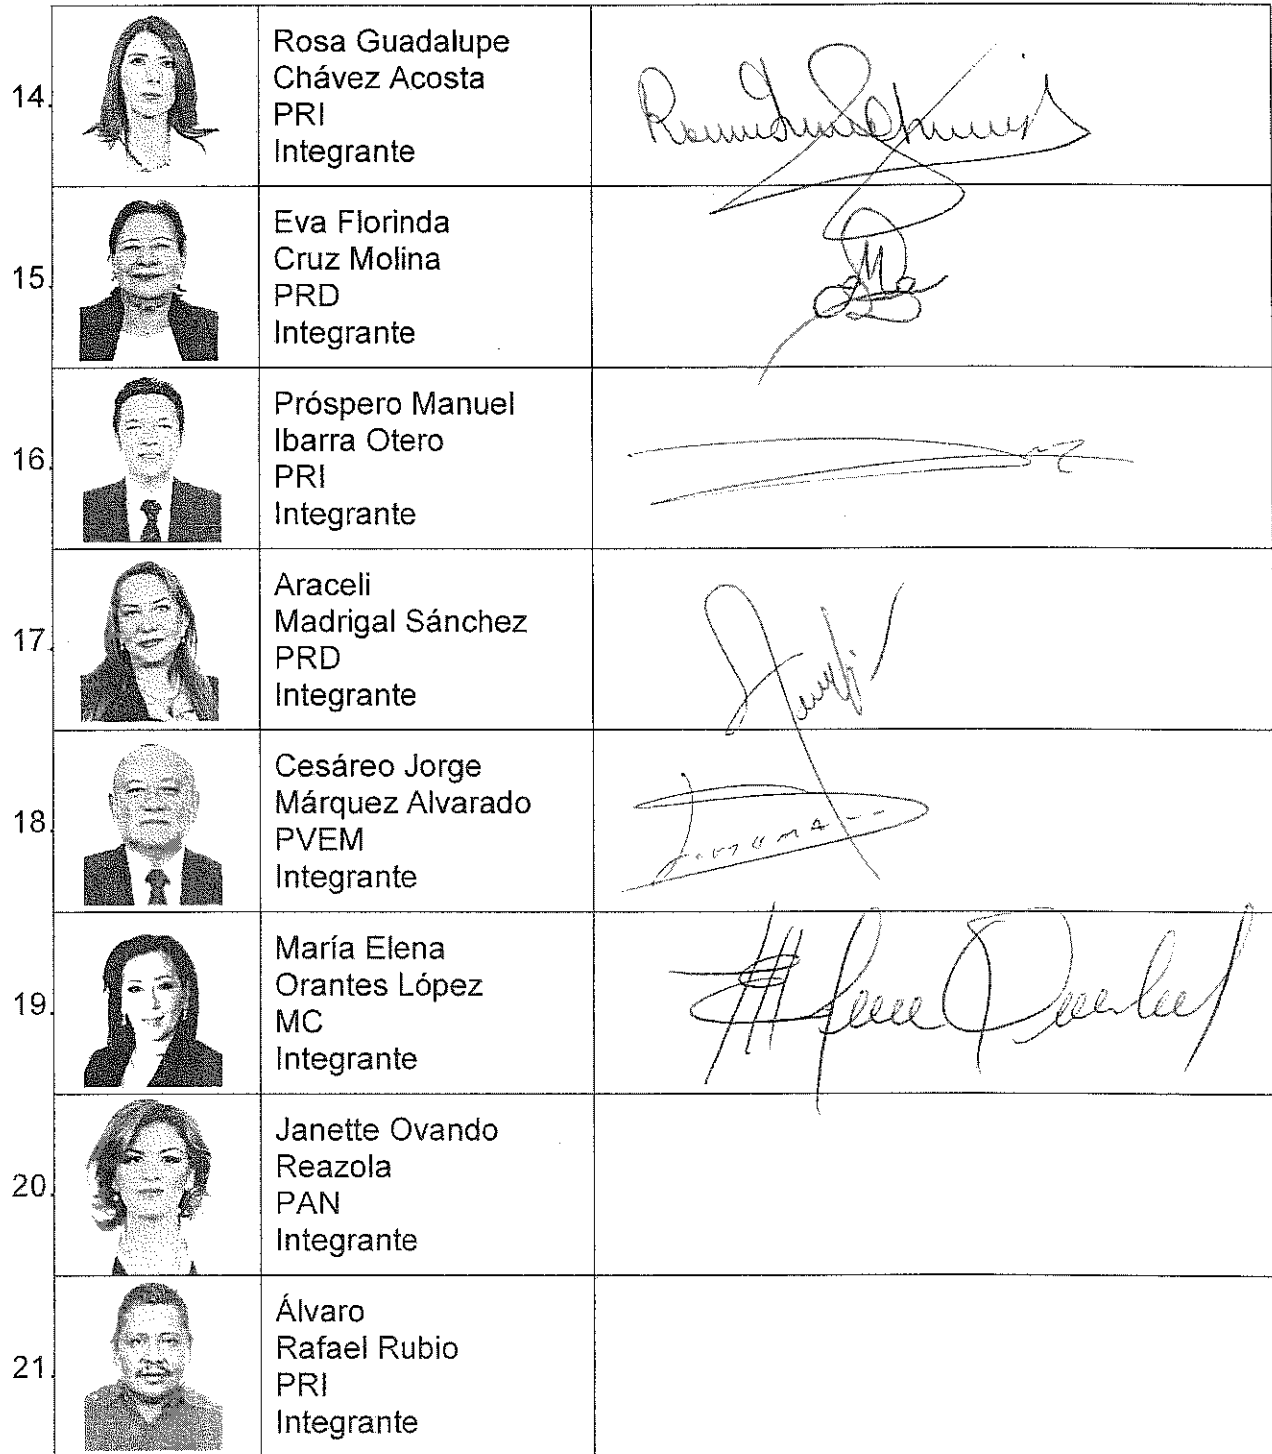 14.
Rosa Guadalupe
Chávez Acosta
PRI
Integrante
15.
Eva Florinda
Cruz Molina
PRD
Integrante
16.
Próspero Manuel
Ibarra Otero
PRI
Integrante
17.
Araceli
Madrigal Sánchez
PRD
Integrante
18.
Cesáreo Jorge
Márquez Alvarado
PVEM
Integrante
19.
María Elena
Orantes López
MC
Integrante
20.
Janette Ovando
Reazola
PAN
Integrante
21.
Álvaro
Rafael Rubio
PRI
Integrante